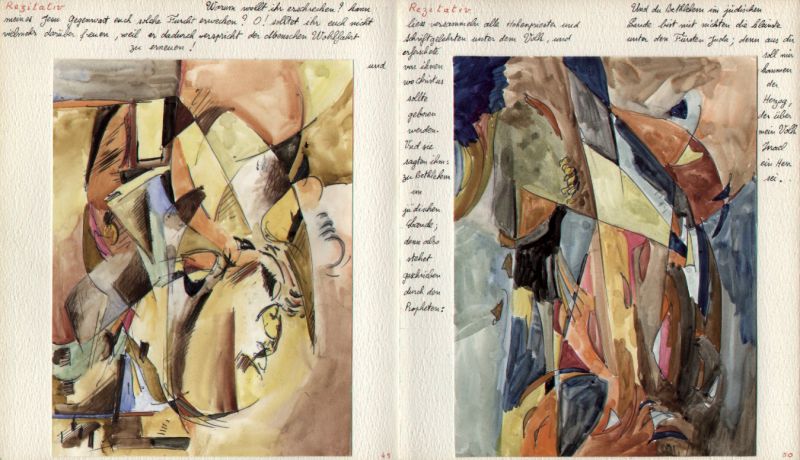 Rezitativ Warum wollt ihr erschrecken? Kann
meines Jesu Gegenwart euch solche Furcht erwecken? O! solltet ihr euch nicht
vielmehr darüber freuen, weil er dadurch verspricht der Menschen Wohlfahrt
zu erneuen!
und
49
Rezitativ
liess versammeln alle Hohenpriester und
Schriftgelehrten unter dem Volk, und
erforschete
von ihnen
wo Christus
sollte
geboren
werden.
Und sie
sagten ihm:
zu Bethlehem
im
jüdischen
Lande;
denn also
stehet
geschrieben
durch den
Propheten:
Und du Bethlehem im jüdischen
Lande bist mit nichten die kleinste
unter den Fürsten Juda; denn aus dir
soll mir
kommen
der
Herzog,
der über
mein Volk
Israel
ein Herr
sei.
50